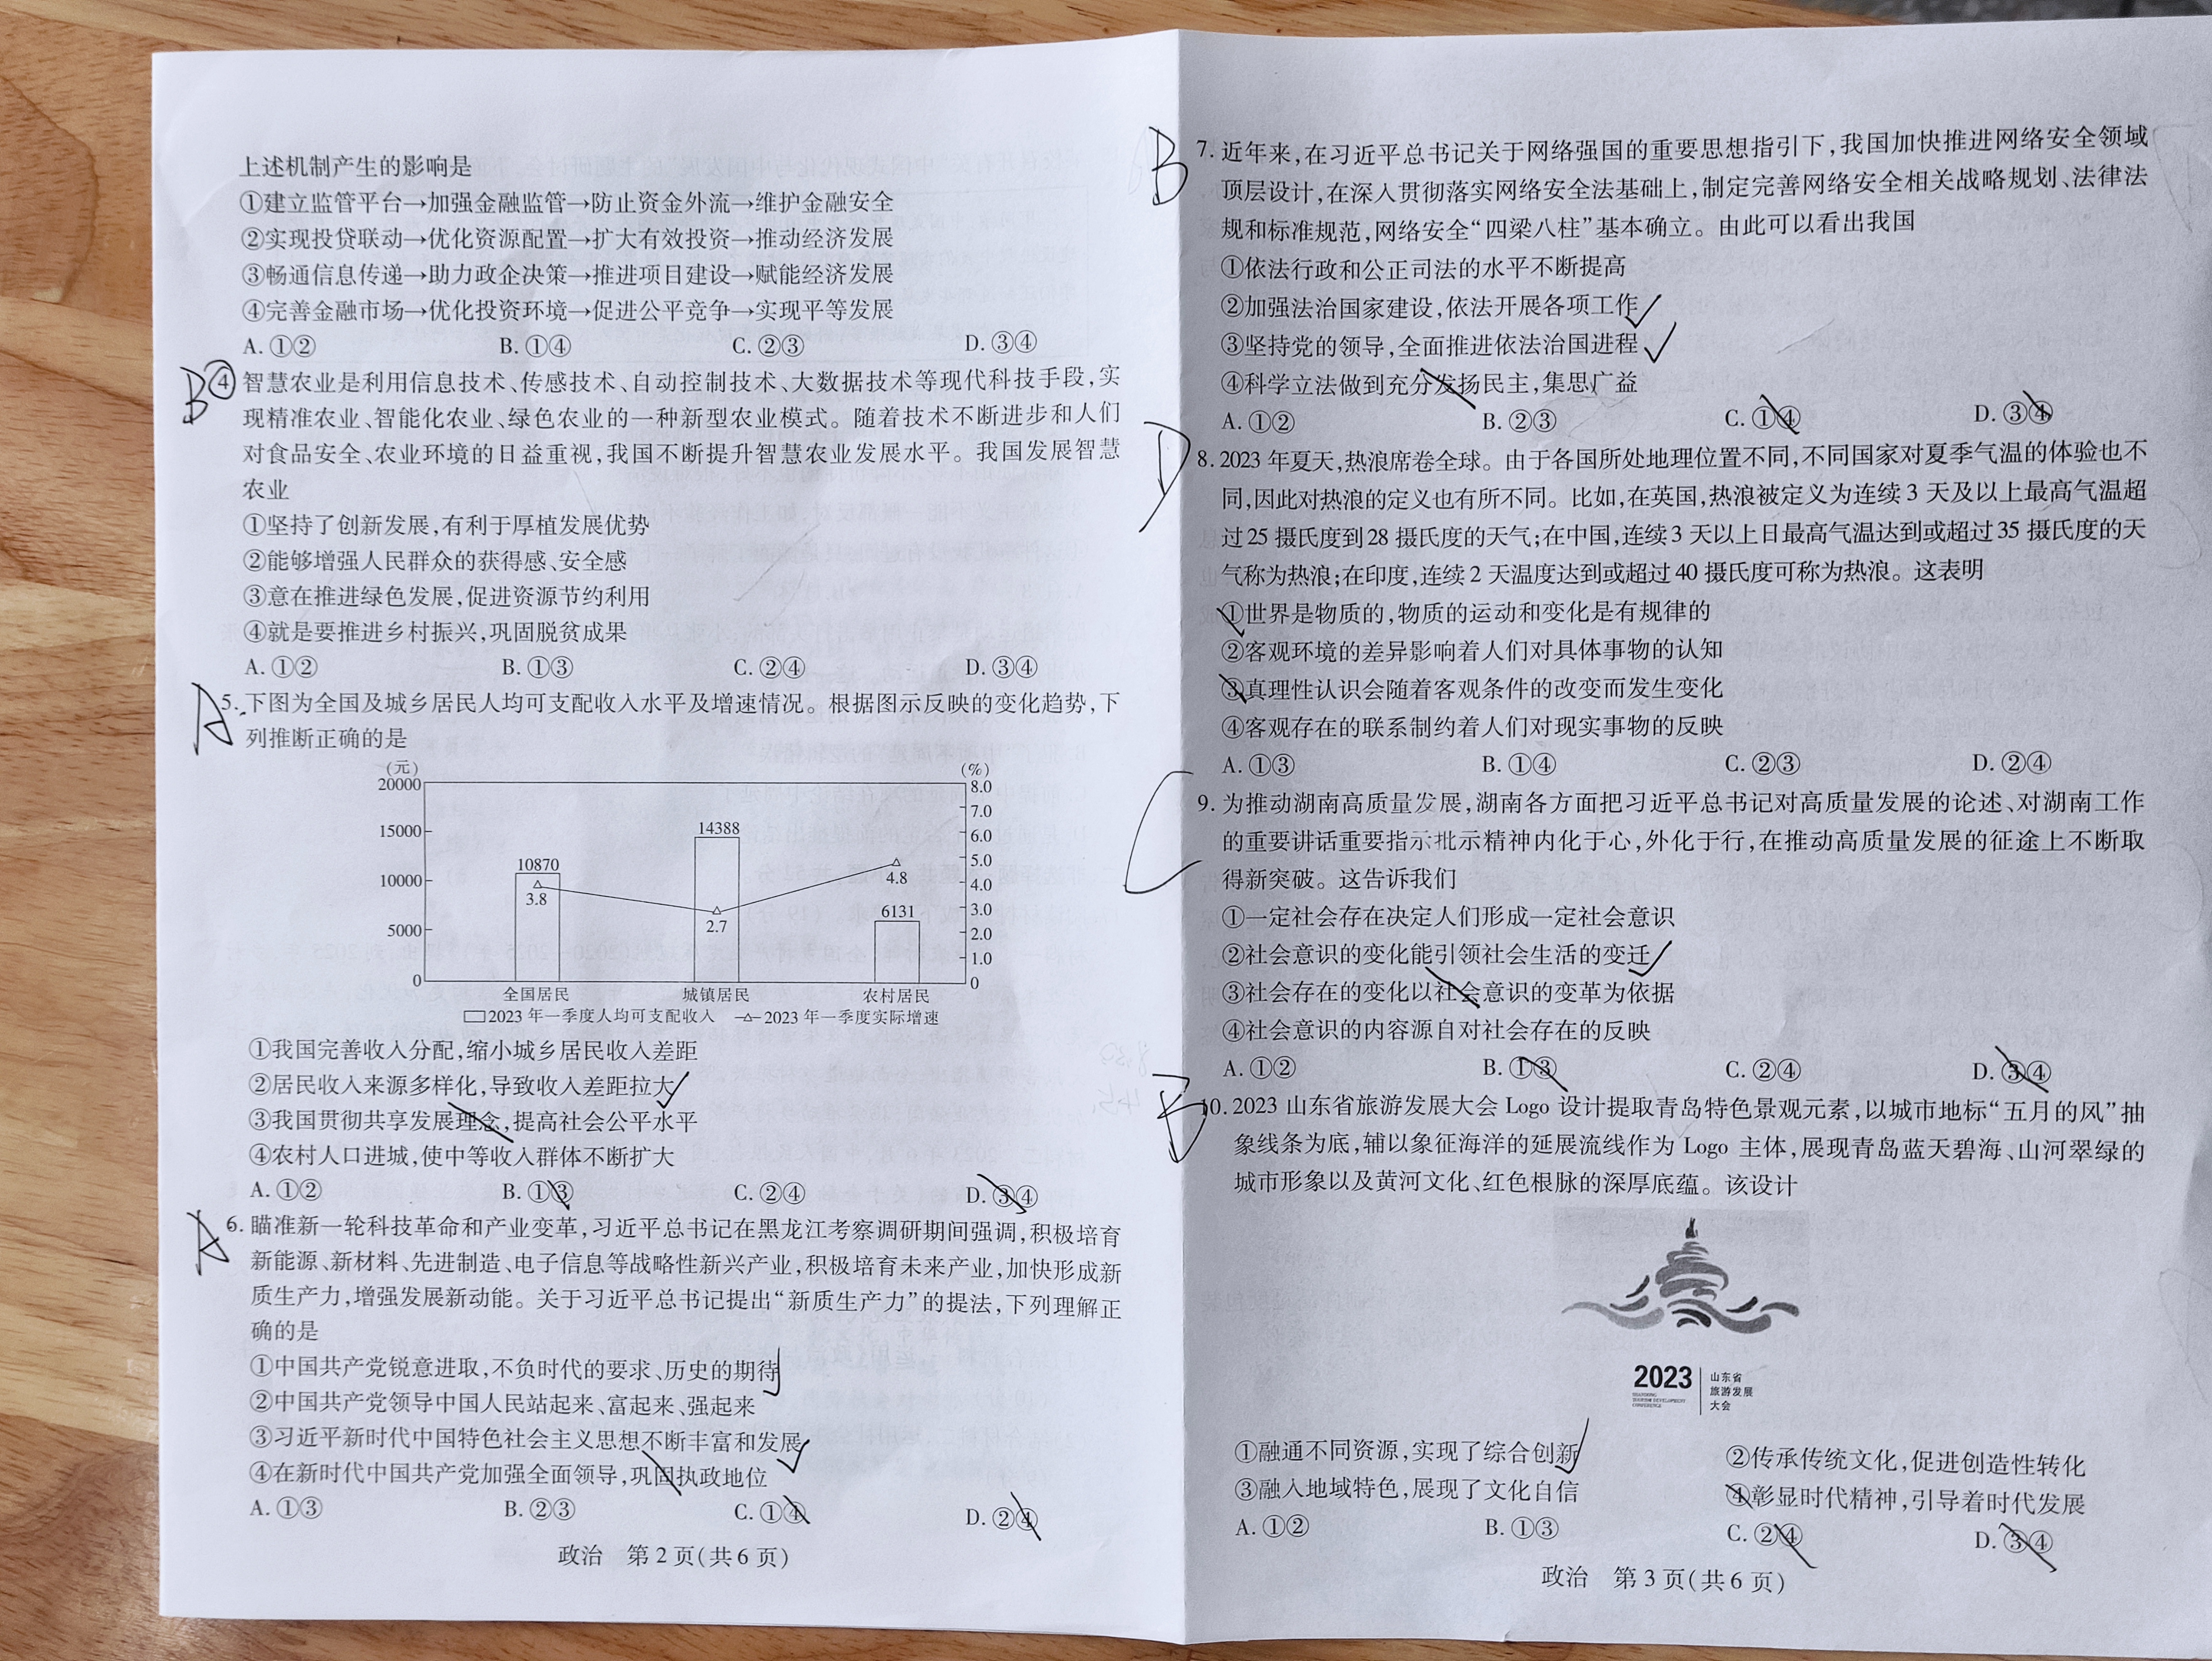 上述机制产生的影响是
①建立监管平台→加强金融监管→防止资金外流→维护金融安全
②实现投贷联动→优化资源配置→扩大有效投资→推动经济发展
③畅通信息传递→助力政企决策→推进项目建设→赋能经济发展
④完善金融市场→优化投资环境→促进公平竞争→实现平等发展
A. ①② B. ①④ C. ②③ D. ③④
B ④ 智慧农业是利用信息技术、传感技术、自动控制技术、大数据技术等现代科技手段,实
现精准农业、智能化农业、绿色农业的一种新型农业模式。随着技术不断进步和人们
对食品安全、农业环境的日益重视,我国不断提升智慧农业发展水平。我国发展智慧
农业
①坚持了创新发展,有利于厚植发展优势
②能够增强人民群众的获得感、安全感
③意在推进绿色发展,促进资源节约利用
④就是要推进乡村振兴,巩固脱贫成果
A. ①② B. ①③ C. ②④ D. ③④
A 5. 下图为全国及城乡居民人均可支配收入水平及增速情况。根据图示反映的变化趋势,下
列推断正确的是
(元) (%)
20000 8.0
7.0
15000 14388 6.0
10870 5.0
10000 3.8 4.8 4.0
2.7 6131 3.0
5000 2.0
1.0
0 0
全国居民 城镇居民 农村居民
2023 年一季度人均可支配收入 2023 年一季度实际增速
①我国完善收入分配,缩小城乡居民收入差距
②居民收入来源多样化,导致收入差距拉大
③我国贯彻共享发展理念,提高社会公平水平
④农村人口进城,使中等收入群体不断扩大
A. ①② B. ①③ C. ②④ D. ③④
A 6. 瞄准新一轮科技革命和产业变革,习近平总书记在黑龙江考察调研期间强调,积极培育
新能源、新材料、先进制造、电子信息等战略性新兴产业,积极培育未来产业,加快形成新
质生产力,增强发展新动能。关于习近平总书记提出“新质生产力”的提法,下列理解正
确的是
①中国共产党锐意进取,不负时代的要求、历史的期待
②中国共产党领导中国人民站起来、富起来、强起来
③习近平新时代中国特色社会主义思想不断丰富和发展
④在新时代中国共产党加强全面领导,巩固执政地位
A. ①③ B. ②③ C. ①④ D. ②④
政治 第 2 页(共 6 页)
B 7. 近年来,在习近平总书记关于网络强国的重要思想指引下,我国加快推进网络安全领域
顶层设计,在深入贯彻落实网络安全法基础上,制定完善网络安全相关战略规划、法律法
规和标准规范,网络安全“四梁八柱”基本确立。由此可以看出我国
①依法行政和公正司法的水平不断提高
②加强法治国家建设,依法开展各项工作
③坚持党的领导,全面推进依法治国进程
④科学立法做到充分发扬民主,集思广益
A. ①② B. ②③ C. ①④ D. ③④
D 8. 2023 年夏天,热浪席卷全球。由于各国所处地理位置不同,不同国家对夏季气温的体验也不
同,因此对热浪的定义也有所不同。比如,在英国,热浪被定义为连续 3 天及以上最高气温超
过 25 摄氏度到 28 摄氏度的天气;在中国,连续 3 天以上日最高气温达到或超过 35 摄氏度的天
气称为热浪;在印度,连续 2 天温度达到或超过 40 摄氏度可称为热浪。这表明
①世界是物质的,物质的运动和变化是有规律的
②客观环境的差异影响着人们对具体事物的认知
③真理性认识会随着客观条件的改变而发生变化
④客观存在的联系制约着人们对现实事物的反映
A. ①③ B. ①④ C. ②③ D. ②④
C 9. 为推动湖南高质量发展,湖南各方面把习近平总书记对高质量发展的论述、对湖南工作
的重要讲话重要指示批示精神内化于心,外化于行,在推动高质量发展的征途上不断取
得新突破。这告诉我们
①一定社会存在决定人们形成一定社会意识
②社会意识的变化能引领社会生活的变迁
③社会存在的变化以社会意识的变革为依据
④社会意识的内容源自对社会存在的反映
A. ①② B. ①③ C. ②④ D. ③④
B 10. 2023 山东省旅游发展大会 Logo 设计提取青岛特色景观元素,以城市地标“五月的风”抽
象线条为底,辅以象征海洋的延展流线作为 Logo 主体,展现青岛蓝天碧海、山河翠绿的
城市形象以及黄河文化、红色根脉的深厚底蕴。该设计
2023
山东省
旅游发展
大会
①融通不同资源,实现了综合创新 ②传承传统文化,促进创造性转化
③融入地域特色,展现了文化自信 ④彰显时代精神,引导着时代发展
A. ①② B. ①③ C. ②④ D. ③④
政治 第 3 页(共 6 页)